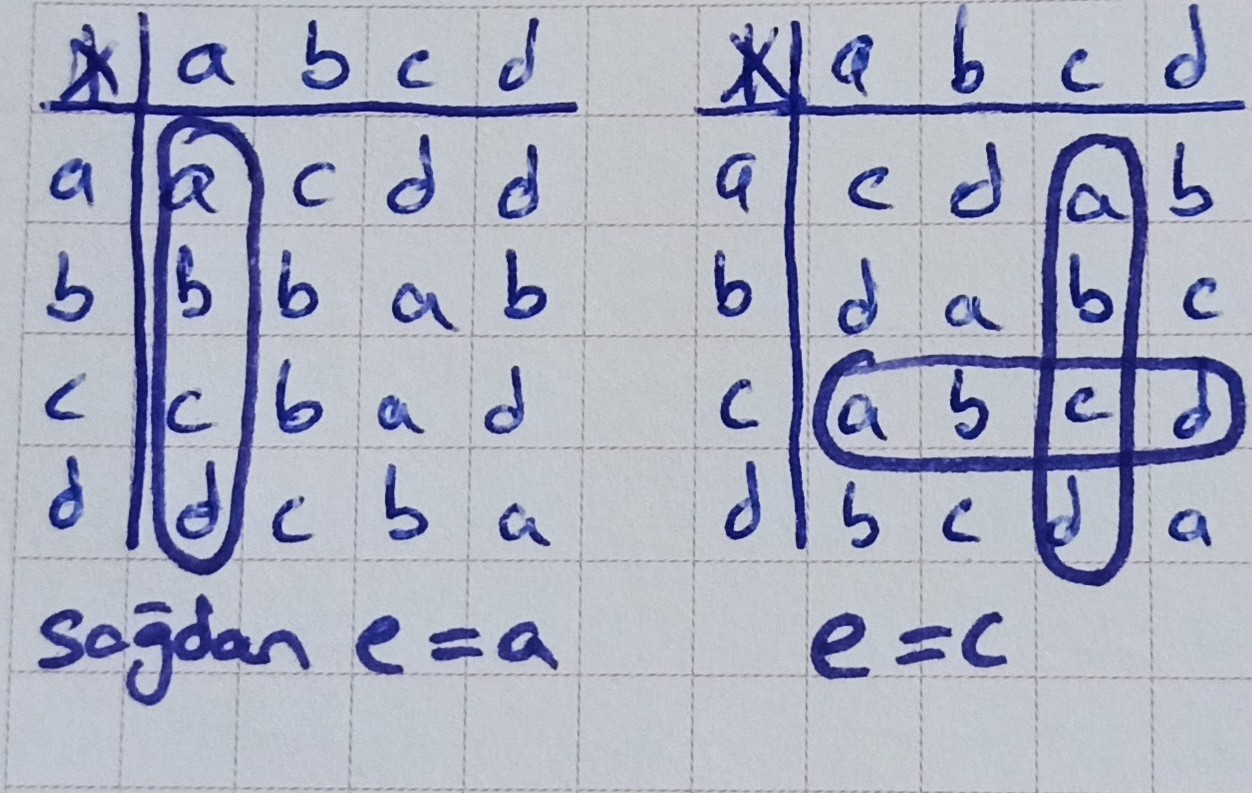 * | a b c d
a | a c d d
b | b b a b
c | c b a d
d | d c b a
sağdan e = a
* | a b c d
a | c d a b
b | d a b c
c | a b c d
d | b c d a
e = c